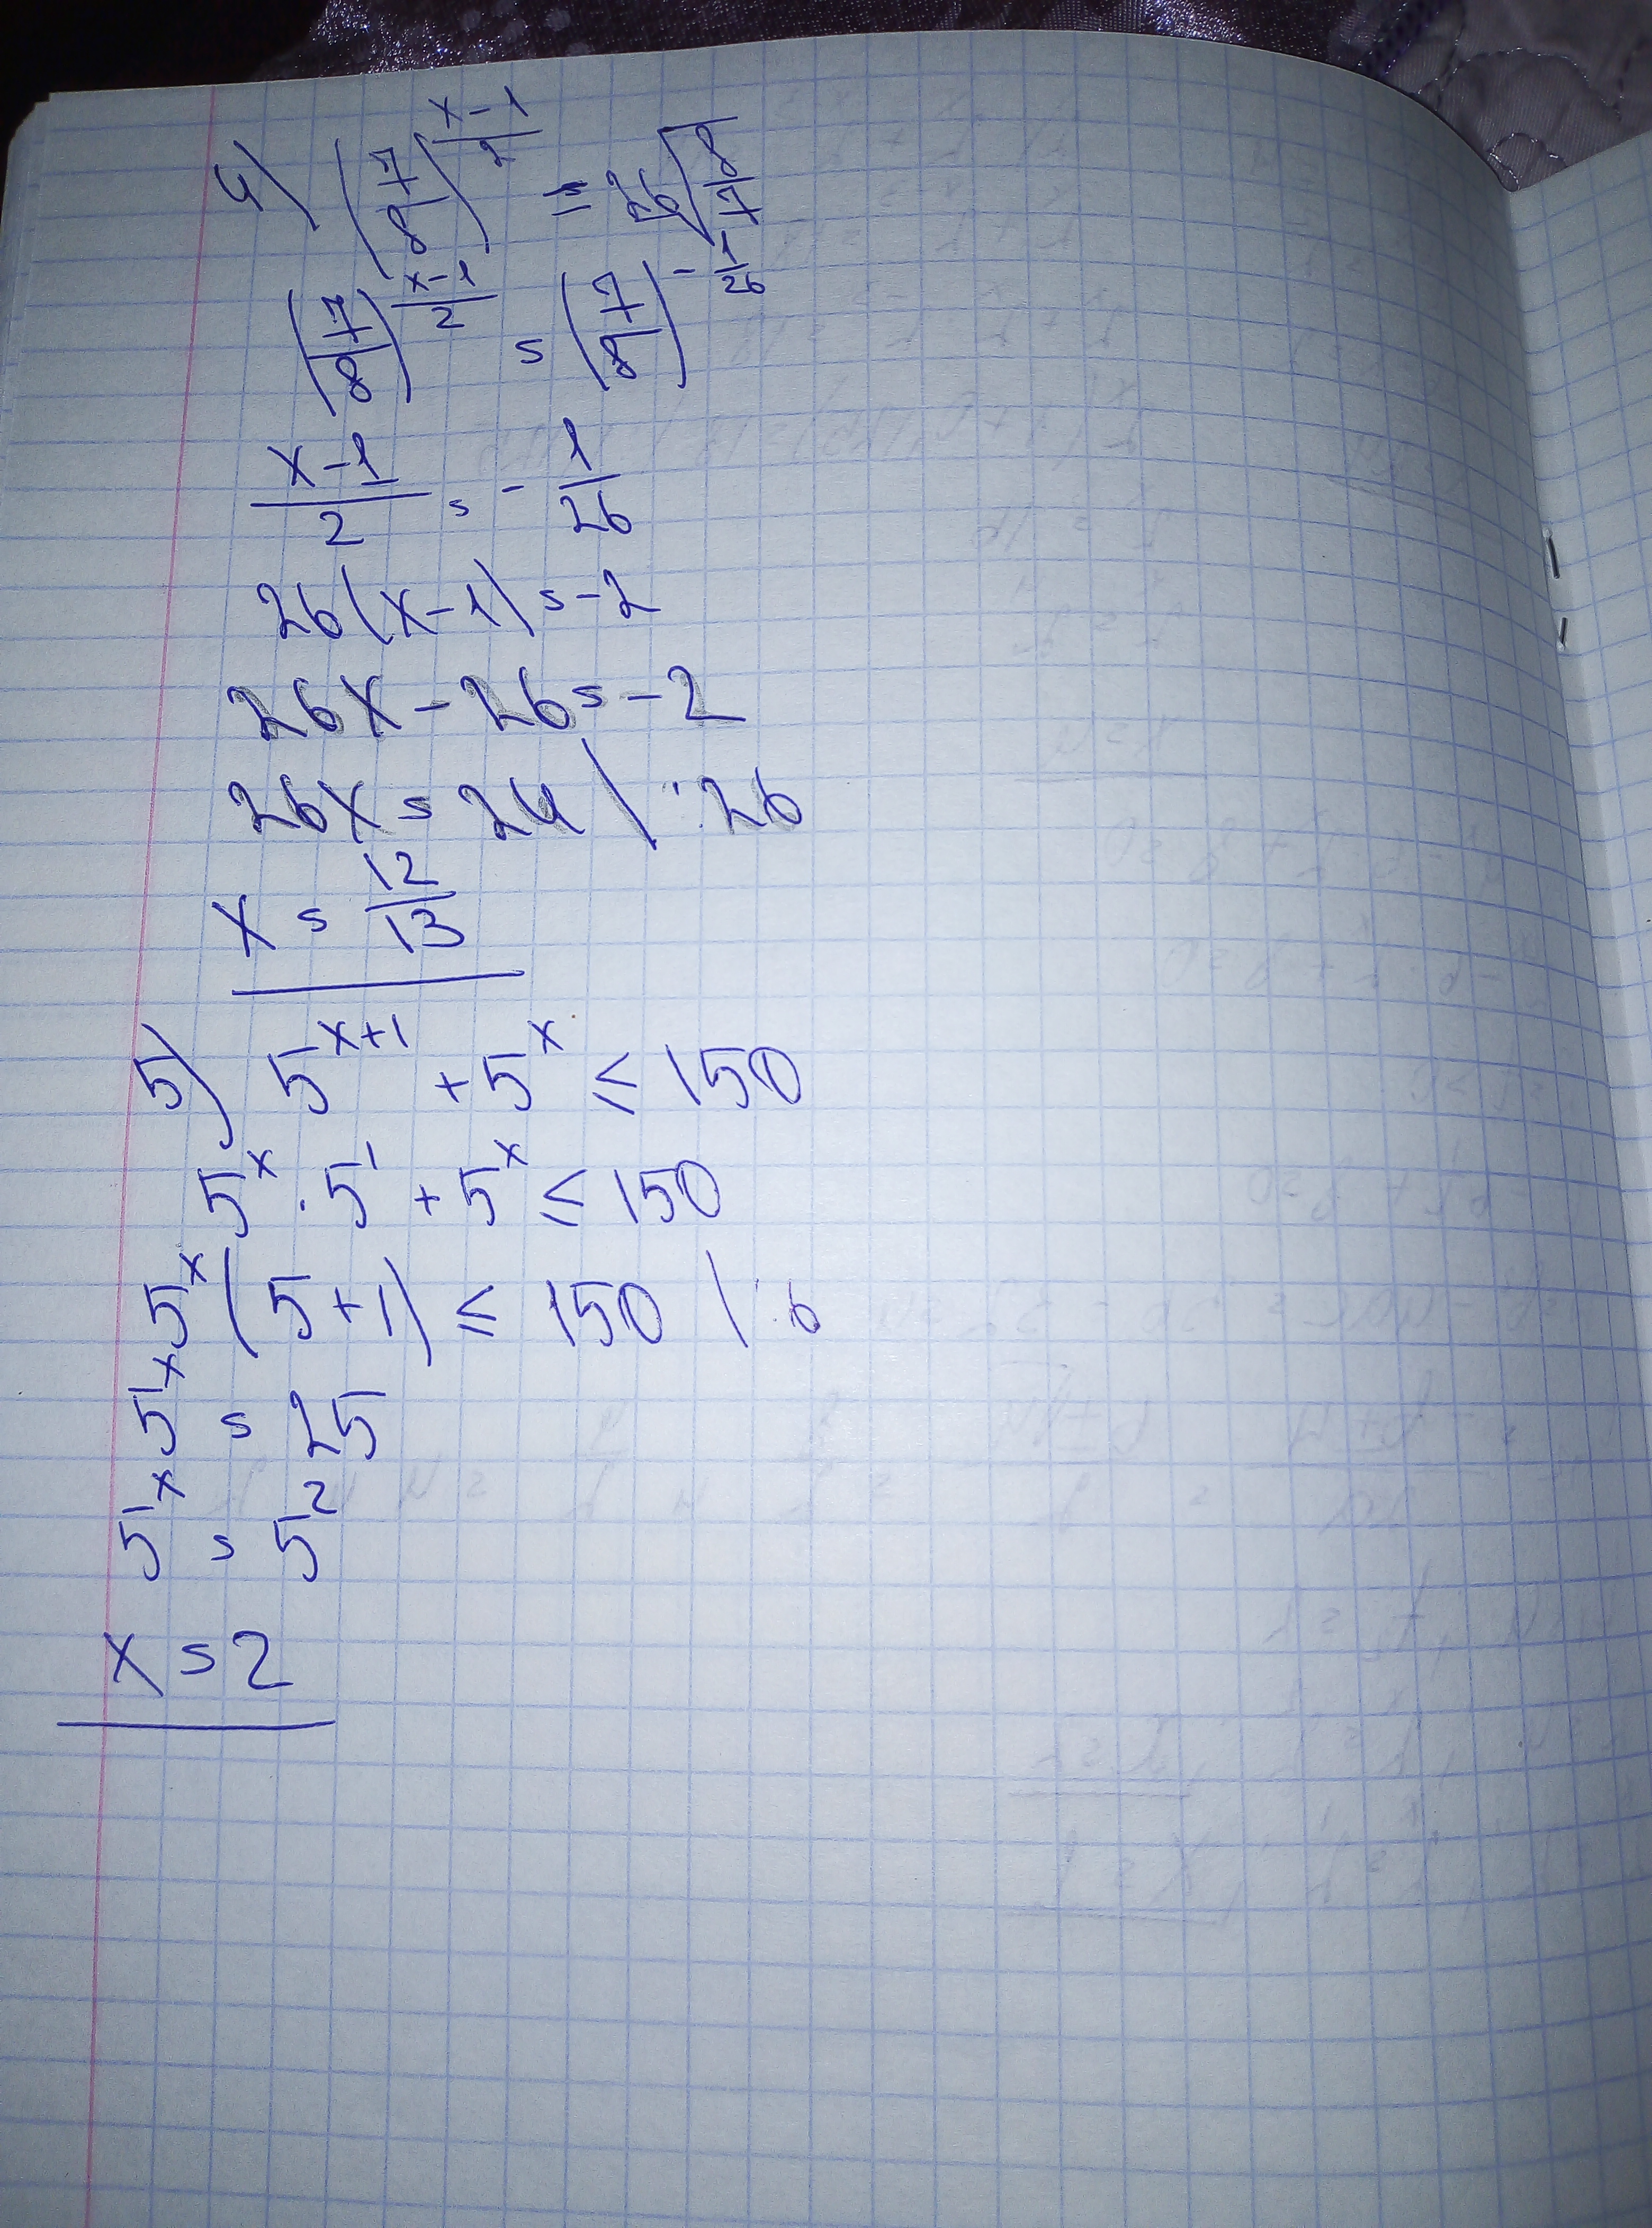 4) (7/8)^((x-1)/2) = ²⁶√(8/7)
(7/8)^((x-1)/2) = (7/8)^(-1/26)
(x-1)/2 = - 1/26
26(x-1) = -2
26x - 26 = -2
26x = 24 | :26
x = 12/13
5) 5^(x+1) + 5^x ≤ 150
5^x · 5^1 + 5^x ≤ 150
5^x (5+1) ≤ 150 | :6
5^x = 25
5^x = 5^2
x = 2